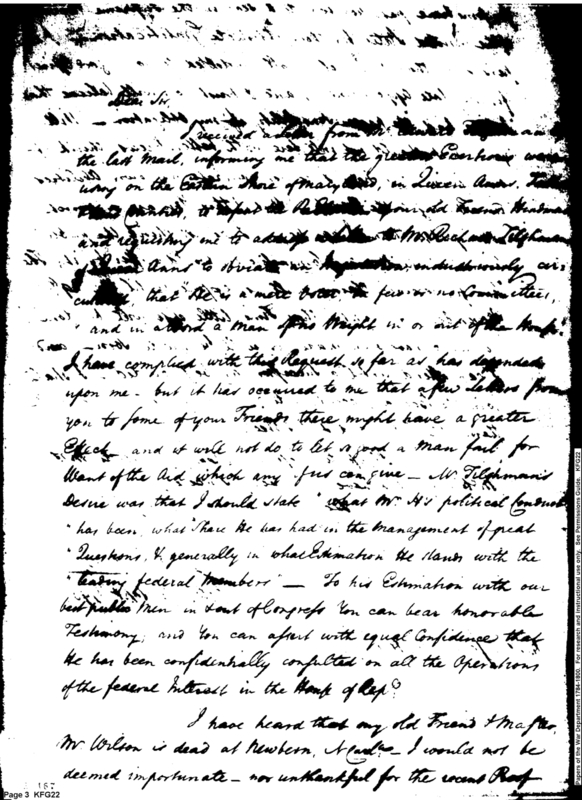 Dear Sir.
I received a Letter from Mr. Edward Tilghman
the last Mail, informing me that the greatest Exertions were
using on the Eastern Shore of Maryland, in Queen Anns.
to defeat the your old Friend Hindman
and requesting me to address a Letter to Mr. Richard Tilghman
of Queen Anns to obviate an industriously cir-
culated, that He is a mere Voter in few or no Committees,
" and in a word a Man of no Weight in or out of the House.
I have complied with this Request so far as has depended
upon me - but it has occurred to me that a few Letters from
you to some of your Friends there might have a greater
Effect and it will not do to let so good a Man fail for
Want of the Aid which any of us can give - Mr Tilghman's
Desire was that I should state " what Mr H's political Conduct
" has been, what Share He has had in the Management of great
" Questions, & generally in what Estimation He stands with the
" leading federal Members " — To his Estimation with our
best public Men in & out of Congress You can bear honorable
Testimony, and You can assert with equal Confidence that
He has been confidentially consulted on all the Operations
of the federal Interest in the House of Reps
I have heard that my old Friend & Master
Mr Wilson is dead at Newbern, N Carola - I would not be
deemed importunate - nor unthankful for the recent Proof
167
Page 3 KFG22
Papers of the War Department 1784-1800. For research and instructional use only. See Permissions Guide. KFG22